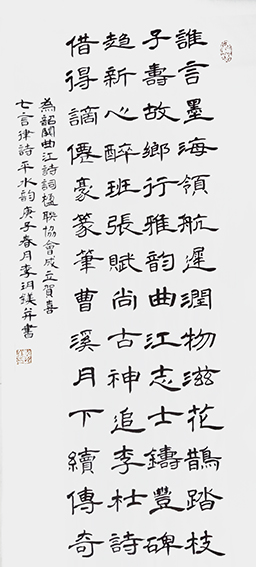 誰言墨海領航遲潤物滋花鵲踏枝
子壽故鄉行雅韵曲江志士鑄豐碑
趍新心醉班張賦尚古神追李杜詩
借得謫僊豪篆筆曹溪月下續傳奇
為韶關曲江詩詞楹聯協會成立賀喜
七言律詩平水韵庚子春月李玥鎂并書